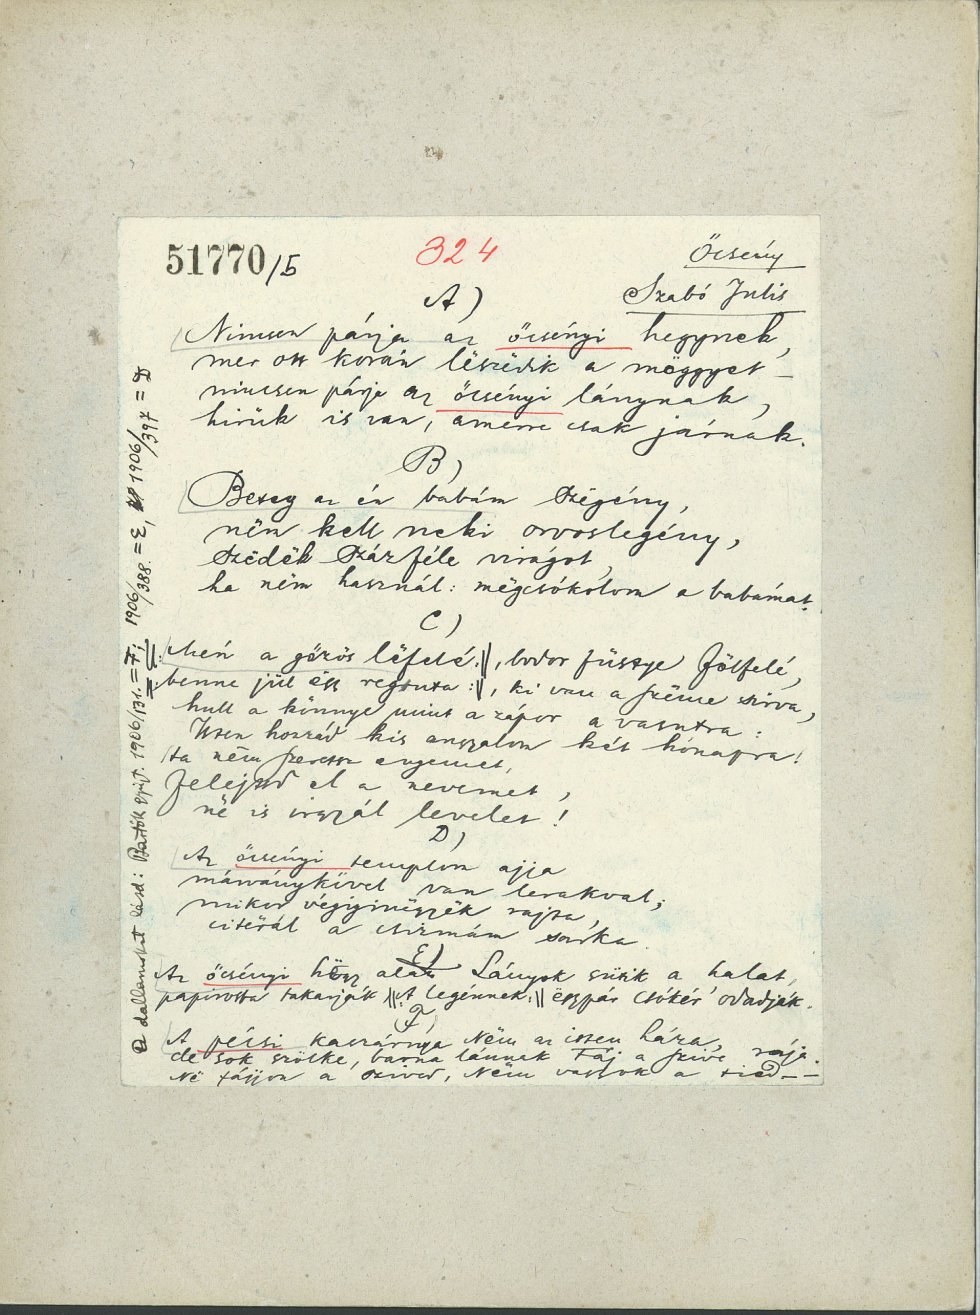 51770/5
324
Őcsény
Szabó Julis
A)
Nincsen párja az őcsényi hegynek,
mer ott korán lëszëdik a mëggyet –
nincsen párja az őcsényi lánynak,
hirük is van, amerre csak járnak.
B)
Beteg az én babám szëgény,
nëm kell neki orvoslegény,
szëdëk százféle virágot,
ha nëm használ: mëgcsókolom a babámat.
C)
||: Mén a gőzös lëfelé :||, bodor füstye fölfelé,
||: benne jül ëgy regruta :||, ki van a szëme sirva,
hull a könnye mint a zápor a vasutra:
Isten hozzád kis angyalom két hónapra!
ta nëm szeretsz engemet,
felejtsd el a nevemet,
në is irgyál levelet!
D)
Az őcsényi templom ajja
márványkővel van lerakval;
mikor végiginëgyëk rajta,
citërál a csizmám sarka.
E)
Az őcsényi högy alatt Lányok sütik a halat,
papirosba takarják ||: A legénnek :|| ëggypár csókér' odadják.
F)
A pécsi kaszárnya Nëm az isten háza,
de sok szöske, barna lánnak Fáj a szive rája.
Në fájjon a szived, Nëm vagyok a tied – –
A dallamokat lásd: Bartók gyűjt. 1906/131. = F; 1906/388. = E, 1906/397 = D